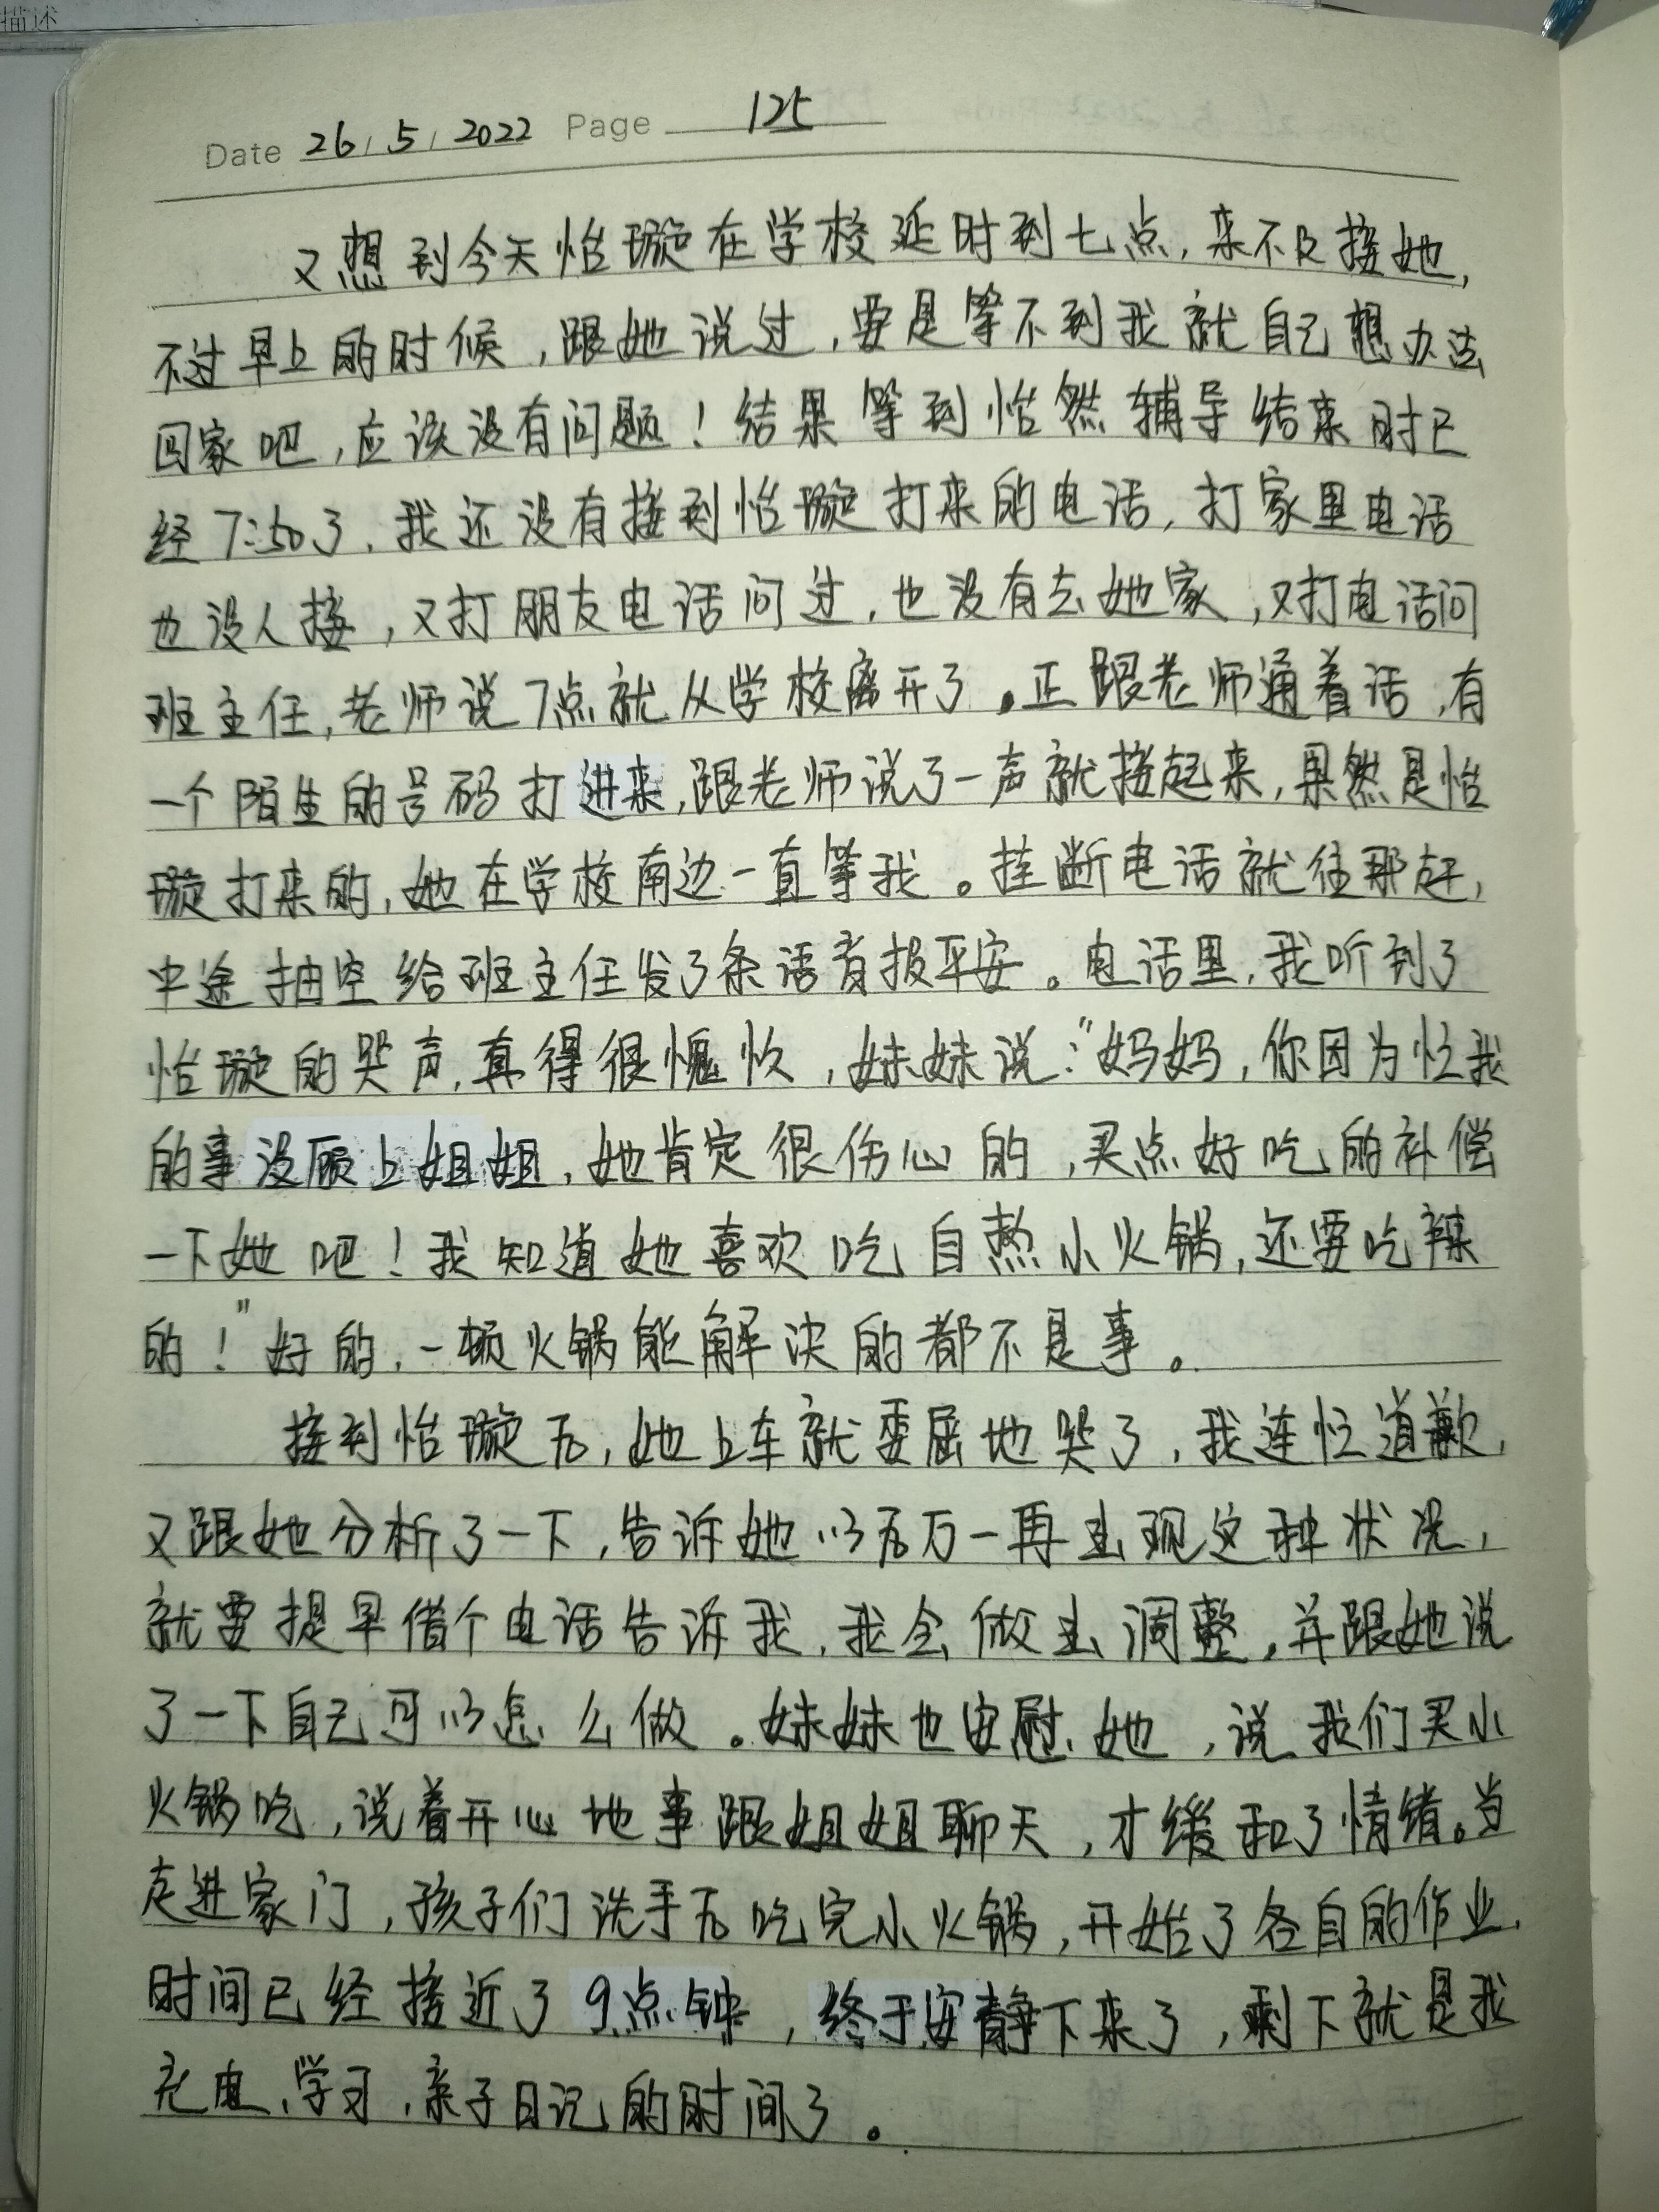 描述
Date 26/5/2022 Page 125
又想到今天怡璇在学校延时到七点,来不及接她,
不过早上的时候,跟她说过,要是等不到我就自己想办法
回家吧,应该没有问题!结果等到怡然辅导结束时已
经7:50了,我还没有接到怡璇打来的电话,打家里电话
也没人接,又打朋友电话问过,也没有去她家,又打电话问
班主任,老师说7点就从学校离开了。正跟老师通着话,有
一个陌生的号码打进来,跟老师说了一声就接起来,果然是怡
璇打来的,她在学校南边一直等我。挂断电话就往那赶,
中途抽空给班主任发了条语音报平安。电话里,我听到了
怡璇的哭声,真得很愧疚,妹妹说:"妈妈,你因为忙我
的事没顾上姐姐,她肯定很伤心的,买点好吃的补偿
一下她吧!我知道她喜欢吃自热小火锅,还要吃辣
的!"好的,一顿火锅能解决的都不是事。
接到怡璇后,她上车就委屈地哭了,我连忙道歉,
又跟她分析了一下,告诉她以后万一再出现这种状况,
就要提早借个电话告诉我,我会做出调整,并跟她说
了一下自己可以怎么做。妹妹也安慰她,说我们买小
火锅吃,说着开心地事跟姐姐聊天,才缓和了情绪。当
走进家门,孩子们洗手后吃完小火锅,开始了各自的作业,
时间已经接近了9点钟,终于安静下来了,剩下就是我
充电、学习,亲子日记的时间了。